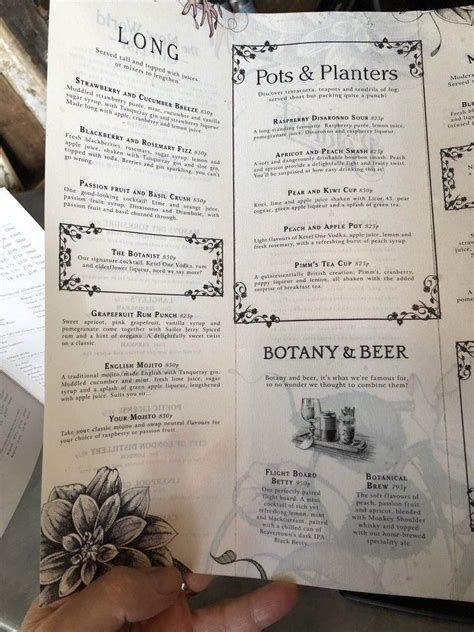 LONG
Served tall and topped with juices
or mixers to lengthen.
STRAWBERRY AND CUCUMBER BREEZE 850p
Muddled strawberry purée, mint, cucumber and
sugar syrup, with Tanqueray gin and strawberry liqueur.
Made long with apple, cranberry and lemon juice.
BLACKBERRY AND ROSEMARY FIZZ
Fresh blackberries, rosemary, sugar syrup, lemon and
apple juices with Tanqueray and sloe gin,
topped with soda. Berries and gin sparkling, you can't
go wrong.
PASSION FRUIT AND BASIL CRUSH 850p
One good-looking cocktail! Lime and orange juice,
passion fruit syrup, Disaronno and Drambuie, with
passion fruit and basil churned through.
THE BOTANIST 850p
Our signature cocktail, Ketel One Vodka, rum
and elderflower liqueur, need we say more?
GRAPEFRUIT RUM PUNCH 825p
Sweet apricot, pink grapefruit, vanilla syrup and
pomegranate come together with Sailor Jerry Spiced
rum and a hint of oregano. A delightfully sweet twist
on a classic.
ENGLISH MOJITO 850p
A traditional mojito, made English with Tanqueray gin.
Muddled cucumber and mint, fresh lime juice, sugar
syrup and a splash of green apple liqueur, lengthened
with apple juice. Suits you sir...
YOUR MOJITO 850p
Take your classic mojito and swap neutral flavours for
your choice of raspberry or passion fruit.
Pots & Planters
Discover terracotta, teapots and tendrils of fog;
served short but packing quite a punch!
RASPBERRY DISARONNO SOUR 825p
A long-standing favourite. Raspberry purée, lemon juice,
pomegranate juice, Disaronno and raspberry liqueur.
APRICOT AND PEACH SMASH
A soft and dangerously drinkable bourbon smash. Peach
and apricot provide a delightfully light and fruity twist.
You'll be surprised at how easy drinking this is!
PEAR AND KIWI CUP 850p
Kiwi, lime and apple juice shaken with Licor 43, pear
cognac, green apple liqueur and a splash of green tea.
PEACH AND APPLE POT 825p
Light flavours of Ketel One Vodka, apple juice, lemon and
fresh rosemary, with a refreshing burst of peach syrup.
PIMM'S TEA CUP 825p
A quintessentially British creation; Pimm's, cranberry,
poppy liqueur and lemon, all shaken with the added
surprise of breakfast tea.
BOTANY & BEER
Botany and beer, it's what we're famous for,
so no wonder we thought to combine them!
FLIGHT BOARD
BETTY 950p
Our perfectly paired
flight board. A mini
cocktail of rich yet
refreshing lemon, mint
and blackcurrant, paired
with a chilled can of
Beavertown's dark IPA
Black Betty.
BOTANICAL
BREW 795p
The soft flavours of
peach, passion fruit
and apricot, blended
with Monkey Shoulder
whisky and topped
with out our home-brewed
speciality ale.